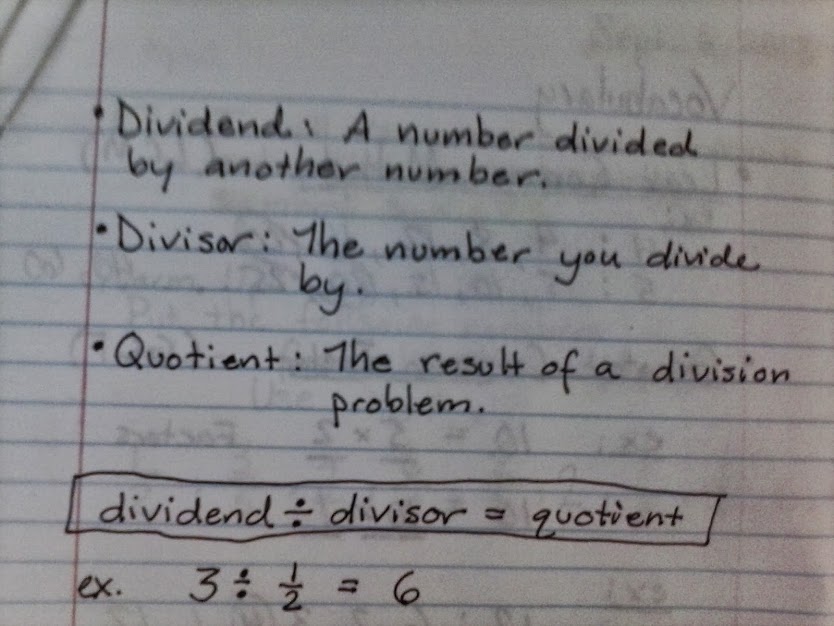 • Dividend: A number divided
by another number.
• Divisor: The number you divide
by.
• Quotient: The result of a division
problem.
dividend ÷ divisor = quotient
ex. 3 ÷ 1/2 = 6